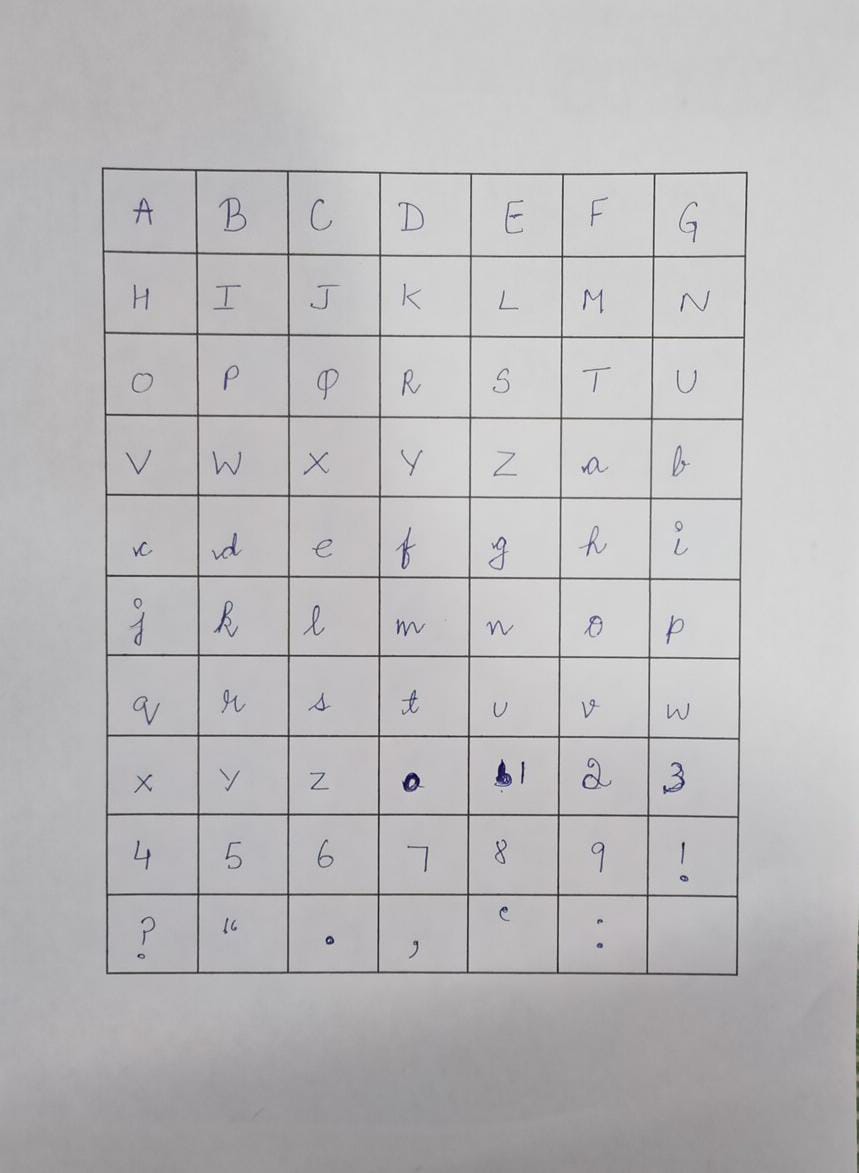 A B C D E F G
H I J K L M N
O P Q R S T U
V W X Y Z a b
c d e f g h i
j k l m n o p
q r s t u v w
x y z 0 1 2 3
4 5 6 7 8 9 !
? “ . , ‘ :